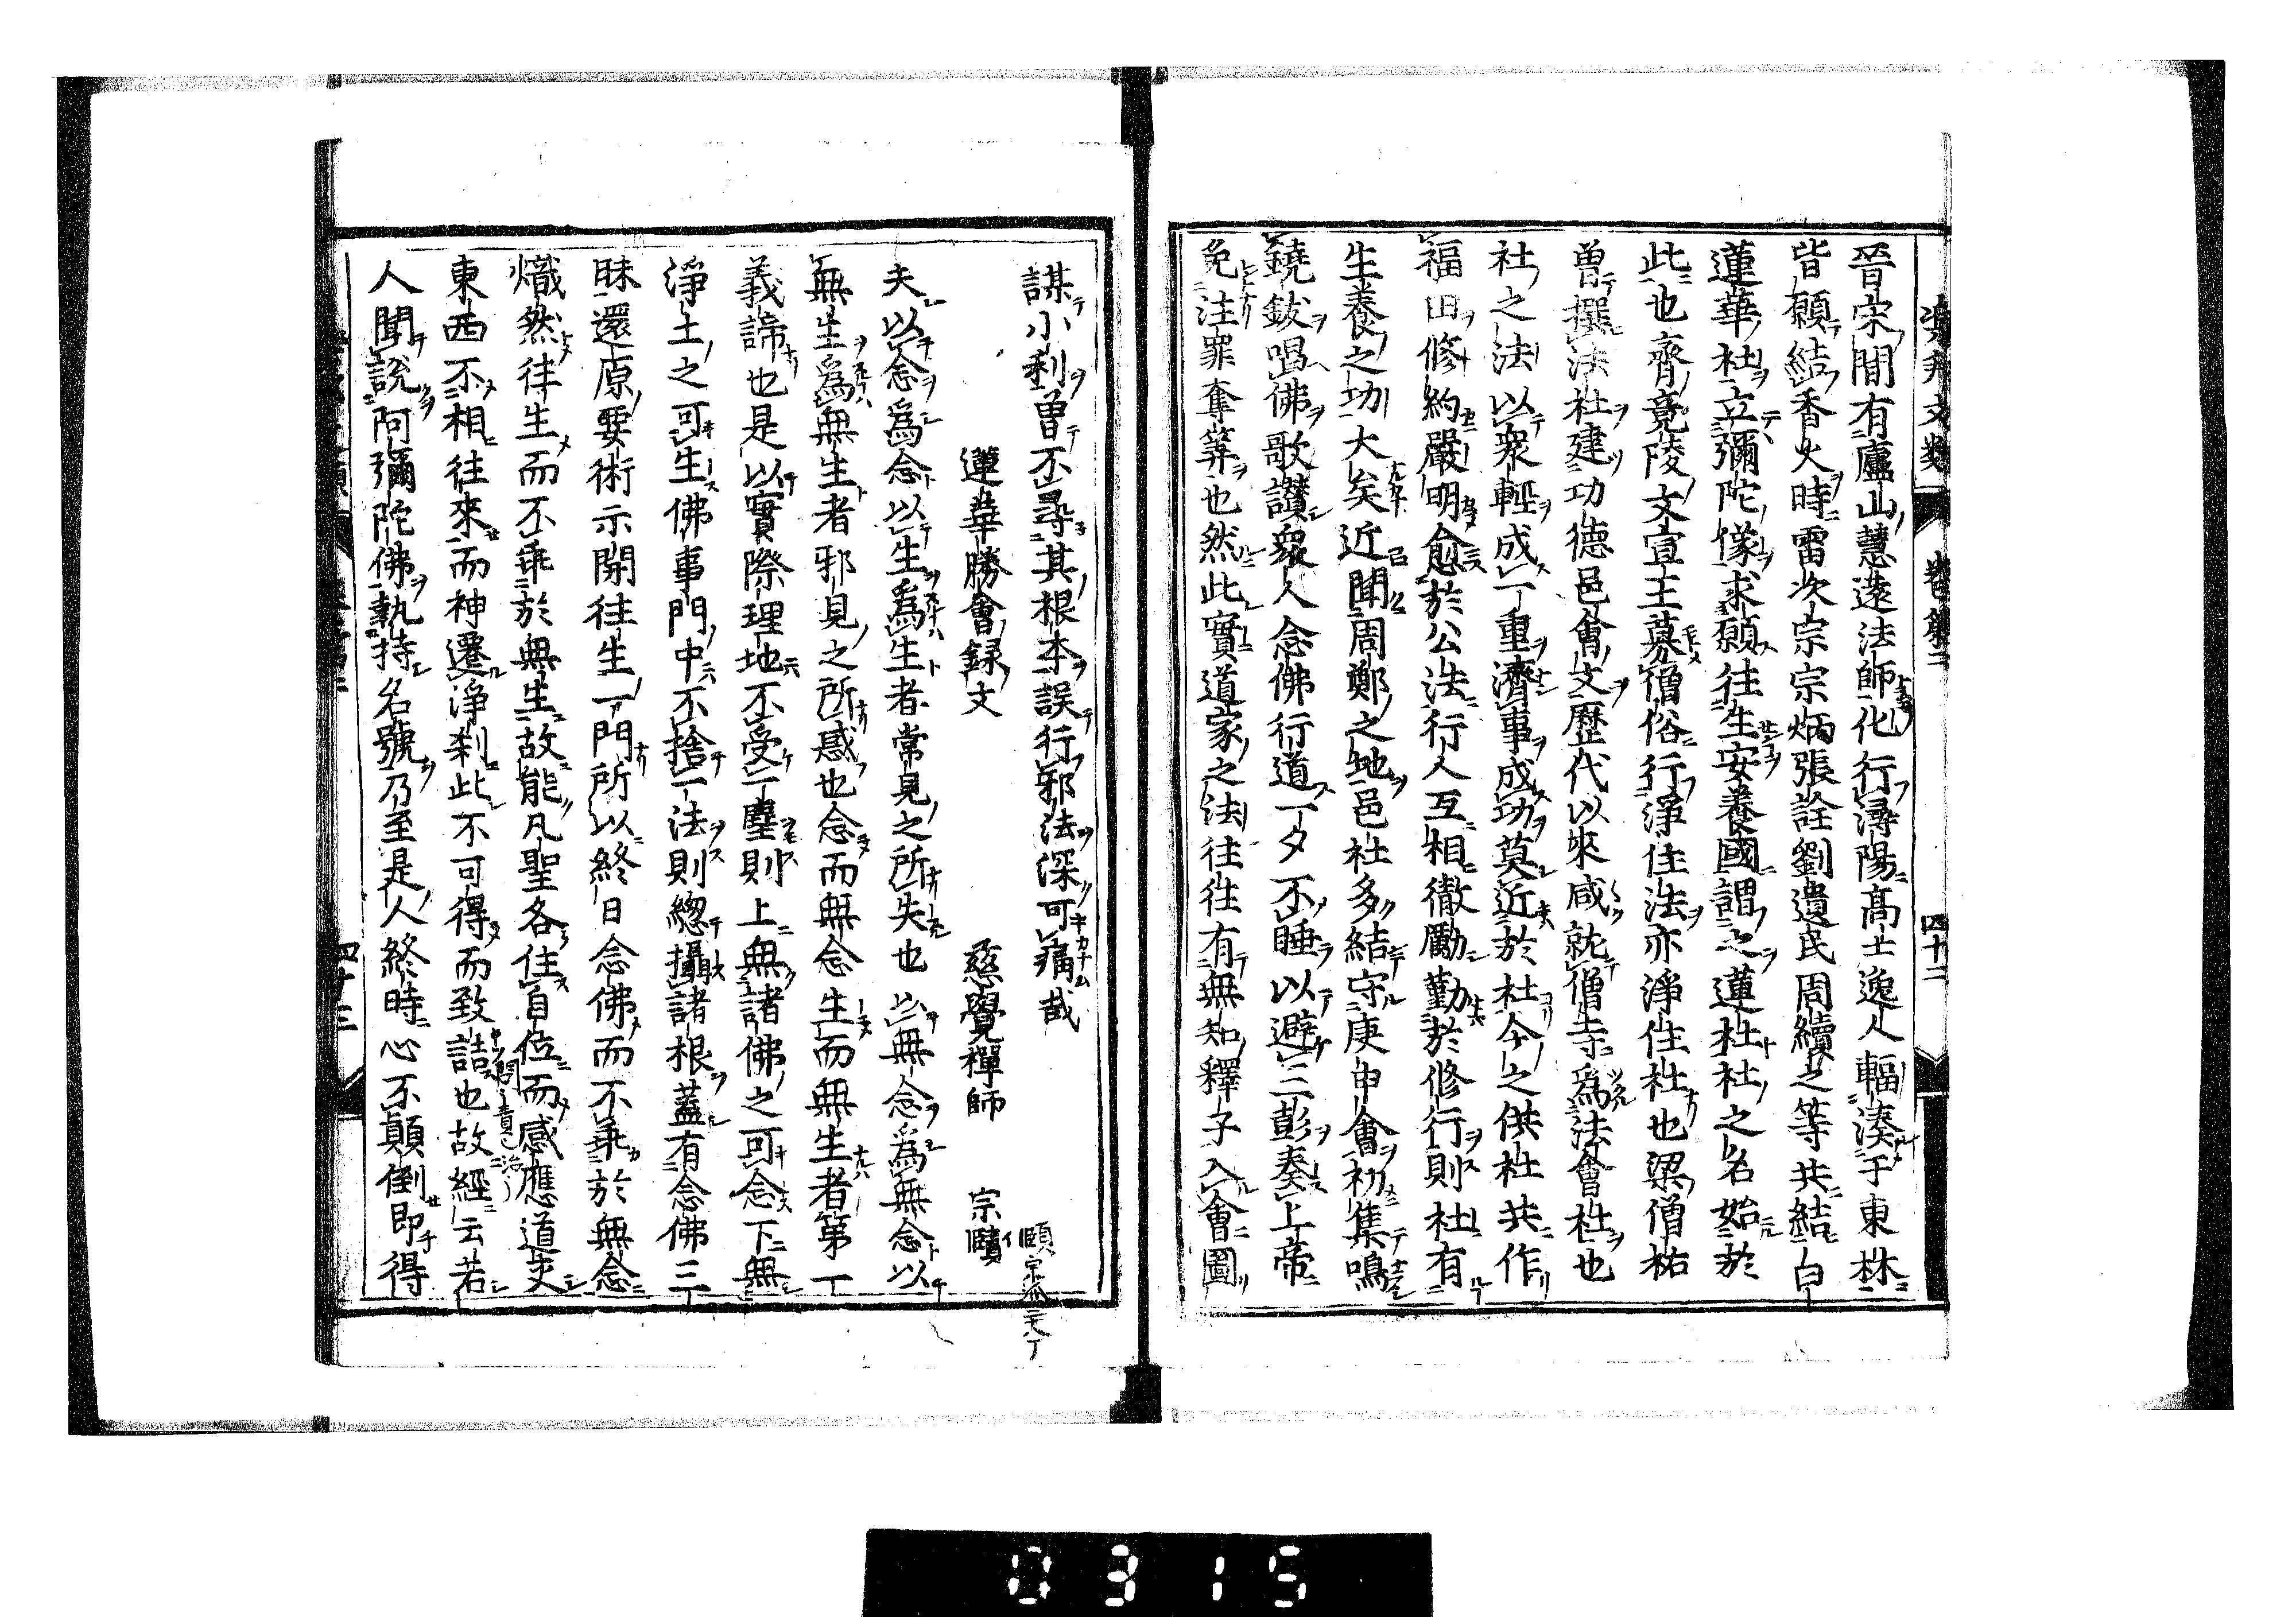 晉宋間有廬山慧遠法師化行潯陽高士逸人輻湊于東林
皆願結香火時雷次宗宗炳張詮劉遺民周續之等共結白
蓮華社立彌陀像求願往生安養國謂之蓮社社之名始於
此也齊竟陵文宣王募僧俗行淨住法亦淨住社也梁僧祐
曾撰法社建功德邑會文歷代以來咸就僧寺爲法會社也
社之法以衆輕成一重濟事成功莫近於社今之供社共作
福田修約嚴明愈於公法行人互相徹勵勤於修行則社有
生養之功大矣近聞周鄭之地邑社多結守庚申會初集鳴
鐃鈸唱佛歌讃衆人念佛行道一夕不睡以避三彭奏上帝
免注罪奪筭也然此實道家之法往往有無知釋子入會圖
四十二
謀小利曾不尋其根本誤行邪法深可痛哉
蓮華勝會録文　慈覺禪師　宗賾
夫以念爲念以生爲生者常見之所失也以無念爲無念以
無生爲無生者邪見之所惑也念而無念生而無生者第一
義諦也是以實際理地不受一塵則上無諸佛之可念下無
淨土之可生佛事門中不捨一法則總攝諸根蓋有念佛三
昧還原要術示開往生一門所以終日念佛而不乖於無念
熾然往生而不乖於無生故能凡聖各住自位而感應道交
東西不相往來而神遷淨刹此不可得而致詰也故經云若
人聞說阿彌陀佛執持名號乃至是人終時心不顛倒即得
四十三
0315